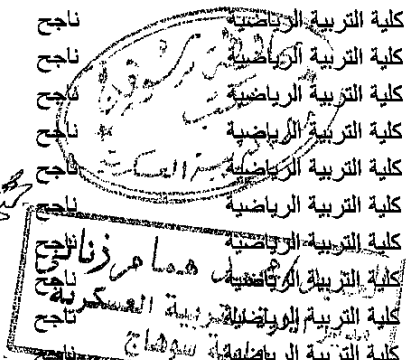 كلية التربية الرياضية ناجح
كلية التربية الرياضية ناجح
كلية التربية الرياضية ناجح
كلية التربية الرياضية ناجح
كلية التربية الرياضية ناجح
كلية التربية الرياضية ناجح
كلية التربية الرياضية ناجح
كلية التربية الرياضية ناجح
كلية التربية الرياضية ناجح
كلية التربية الرياضية ناجح
همام زناتي
التربية العسكرية
سوهاج